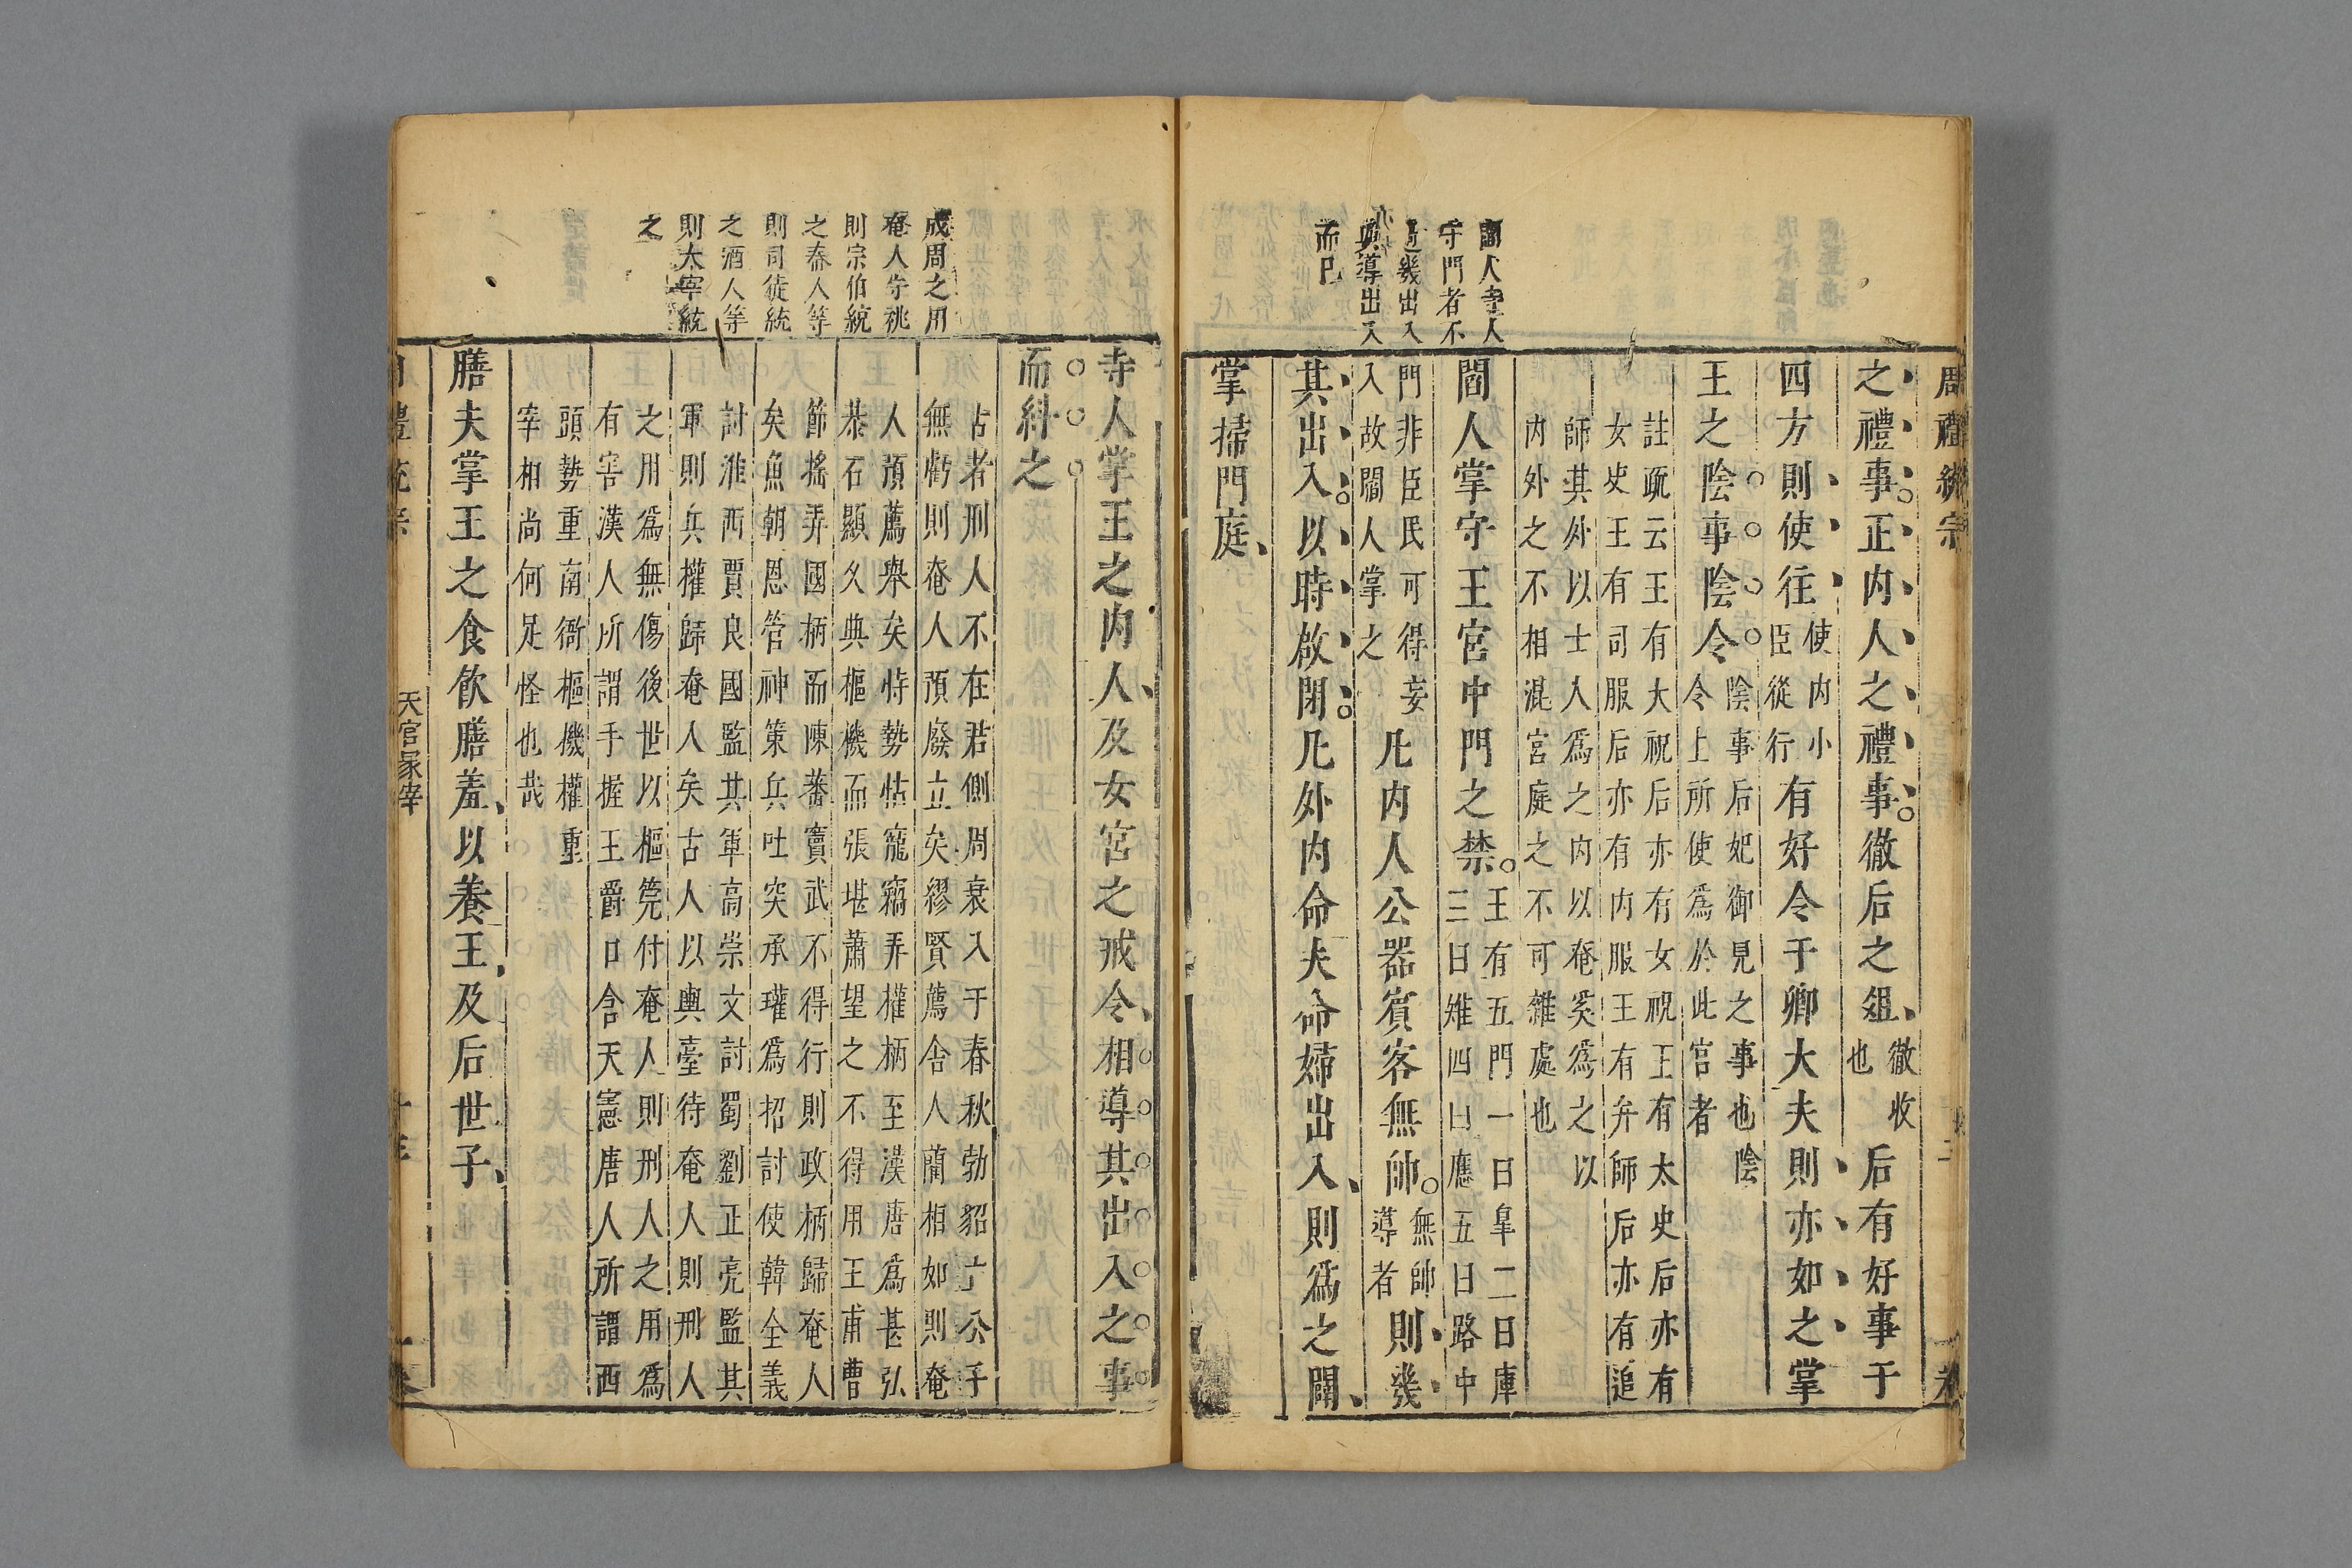 周禮統宗
之禮事正内人之禮事徹后之俎徹收
也后有好事于
四方則使往使内小
臣從行有好令于卿大夫則亦如之掌
王之陰事陰令陰事后妃御見之事也陰
令上所使爲於此官者
註疏云王有大祝后亦有女祝王有太史后亦有
女史王有司服后亦有内服王有弁師后亦有追
師其外以士人爲之内以奄奚爲之以
内外之不相混宮庭之不可雜處也
閽人掌守王宮中門之禁王有五門一曰臯二曰庫
三曰雉四曰應五曰路中
門非臣民可得妄
入故閽人掌之凡内人公器賓客無帥無帥
導者則幾
其出入以時啟閉凡外内命夫命婦出入則爲之闢
掌掃門庭
閽人寺人
守門者不
過幾出入
與導出入
而已
寺人掌王之内人及女宮之戒令相導其出入之事
而糾之
古者刑人不在君側周衰入于春秋勃貂亡公子
無虧則奄人預廢立矣繆賢薦舍人藺相如則奄
人預薦舉矣恃勢怙寵竊弄權柄至漢唐爲甚弘
恭石顯久典樞機而張堪蕭望之不得用王甫曹
節搖弄國柄而陳蕃竇武不得行則政柄歸奄人
矣魚朝恩管神策兵吐突承璀爲招討使韓全義
討淮西賈良國監其軍高崇文討蜀劉正亮監其
軍則兵權歸奄人矣古人以輿臺待奄人則刑人
之用爲無傷後世以樞筦付奄人則刑人之用爲
有害漢人所謂手握王爵口含天憲唐人所謂西
頭勢重南衙樞機權重
宰相尚何足怪也哉
膳夫掌王之食飲膳羞以養王及后世子
成周之用
奄人守祧
則宗伯統
之舂人等
則司徒統
之酒人等
則太宰統
之
天官冢宰